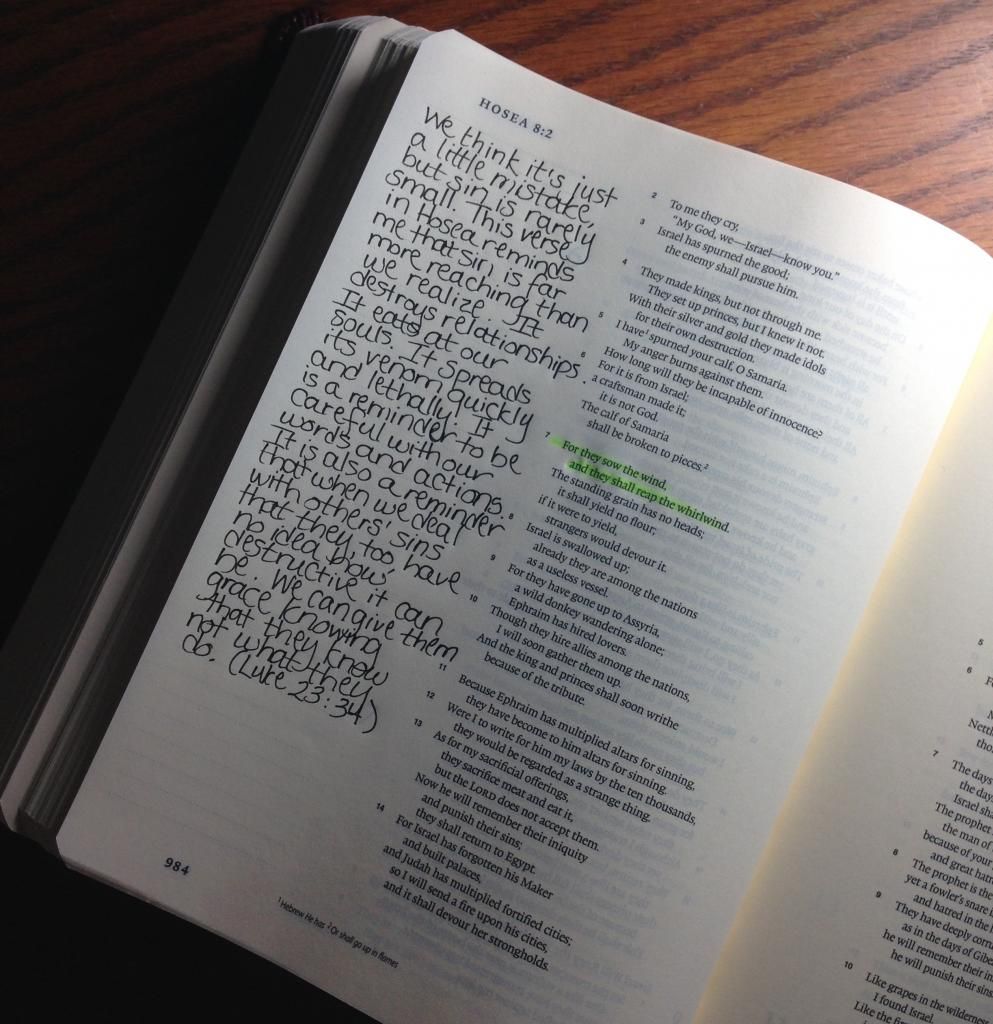 HOSEA 8:2
We think it's just
a little mistake
but sin is rarely
small. This verse
in Hosea reminds
me that sin is far
more reaching than
we realize. It
destroys relationships.
It eats at our
souls. It spreads
its venom quickly
and lethally. It
is a reminder to be
careful with our
words and actions.
It is also a reminder
that when we deal
with others' sins
that they, too, have
no idea how
destructive it can
be. We can give them
grace knowing
that they know
not what they
do. (Luke 23:34)
2 To me they cry,
"My God, we—Israel—know you."
3 Israel has spurned the good;
the enemy shall pursue him.
4 They made kings, but not through me.
They set up princes, but I knew it not.
With their silver and gold they made idols
for their own destruction.
5 I have¹ spurned your calf, O Samaria.
My anger burns against them.
How long will they be incapable of innocence?
6 For it is from Israel;
a craftsman made it;
it is not God.
The calf of Samaria
shall be broken to pieces.²
7 For they sow the wind,
and they shall reap the whirlwind.
The standing grain has no heads;
it shall yield no flour;
if it were to yield,
strangers would devour it.
8 Israel is swallowed up;
already they are among the nations
as a useless vessel.
9 For they have gone up to Assyria,
a wild donkey wandering alone;
Ephraim has hired lovers.
10 Though they hire allies among the nations,
I will soon gather them up.
And the king and princes shall soon writhe
because of the tribute.
11 Because Ephraim has multiplied altars for sinning,
they have become to him altars for sinning.
12 Were I to write for him my laws by the ten thousands,
they would be regarded as a strange thing.
13 As for my sacrificial offerings,
they sacrifice meat and eat it,
but the LORD does not accept them.
Now he will remember their iniquity
and punish their sins;
they shall return to Egypt.
14 For Israel has forgotten his Maker
and built palaces,
and Judah has multiplied fortified cities;
so I will send a fire upon his cities,
and it shall devour her strongholds.
984
¹ Hebrew He has ² Or shall go up in flames
5
6
7 The days
the day
Israel
The prophet
the man of
because of your
and great
8 The prophet is the
yet a fowler's snare
and hatred in the
9 They have deeply
as in the days of
he will remember their
he will punish their sins.
10 Like grapes in the wilderness
I found Israel.
Like the